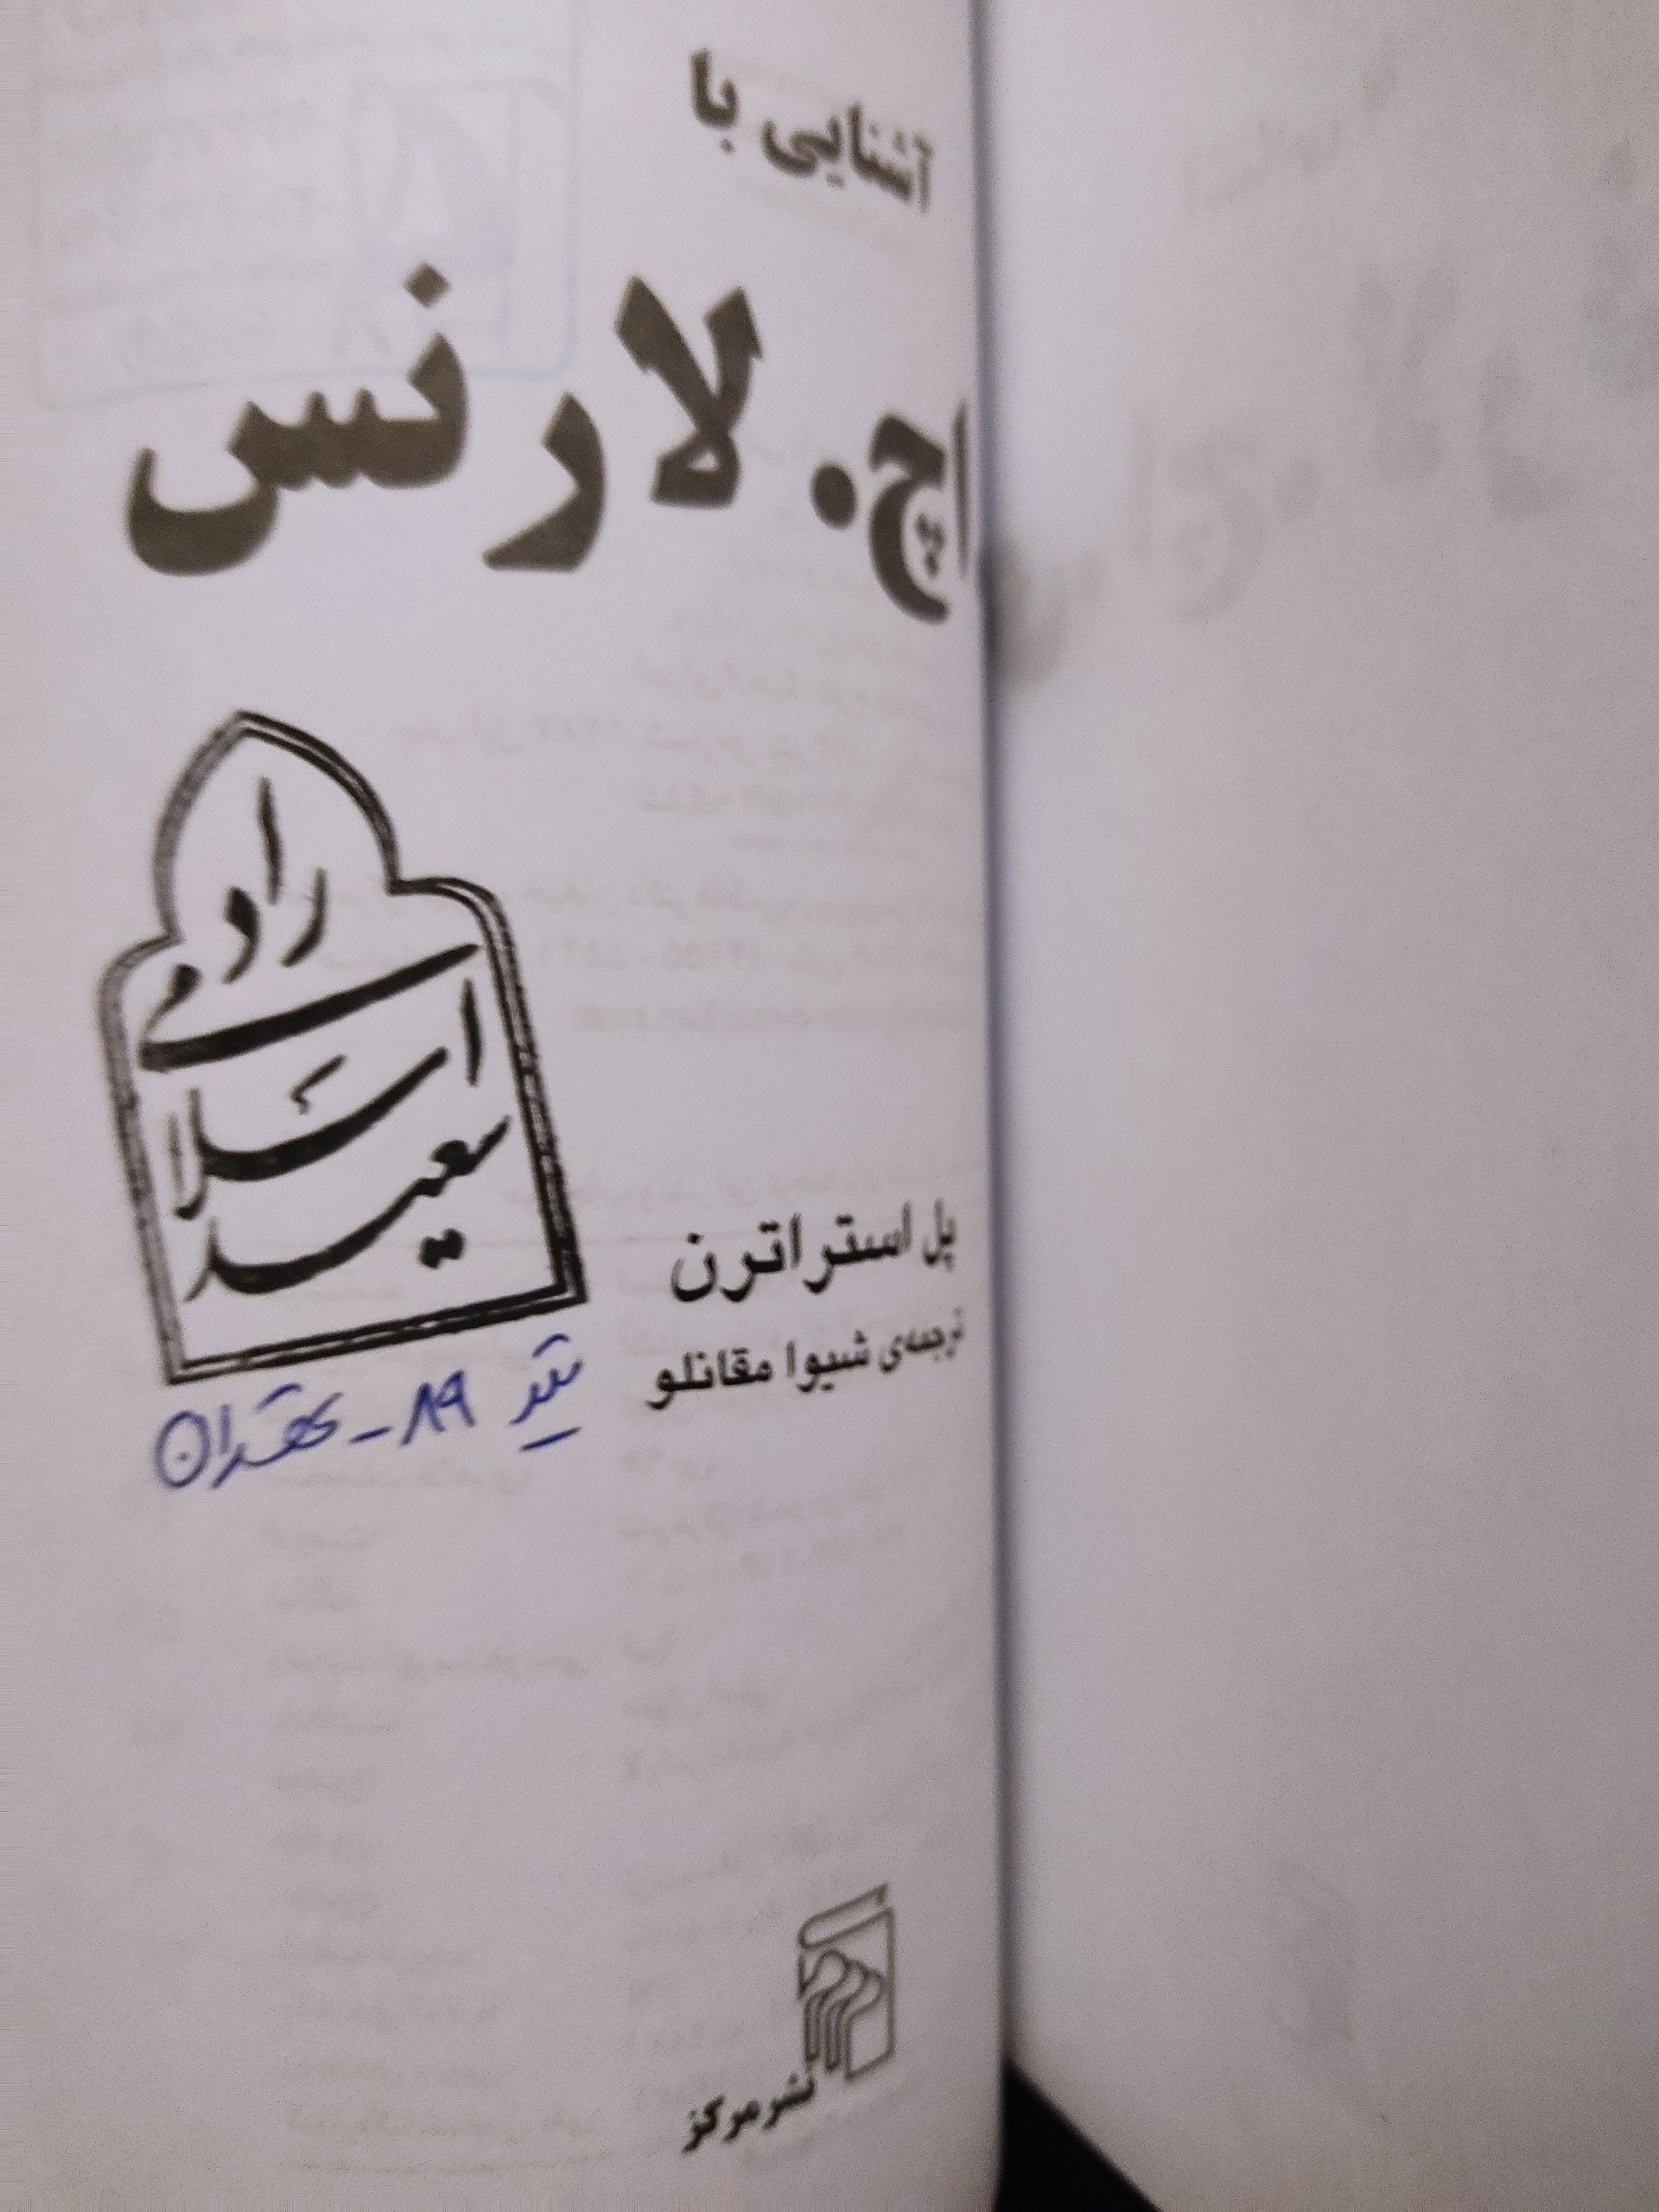 آشنایی با
اچ. لارنس
سعید
اسلامی
راد
پل استراترن
ترجمه‌ی شیوا مقانلو
تیر ۸۹ - تهران
نشر مرکز